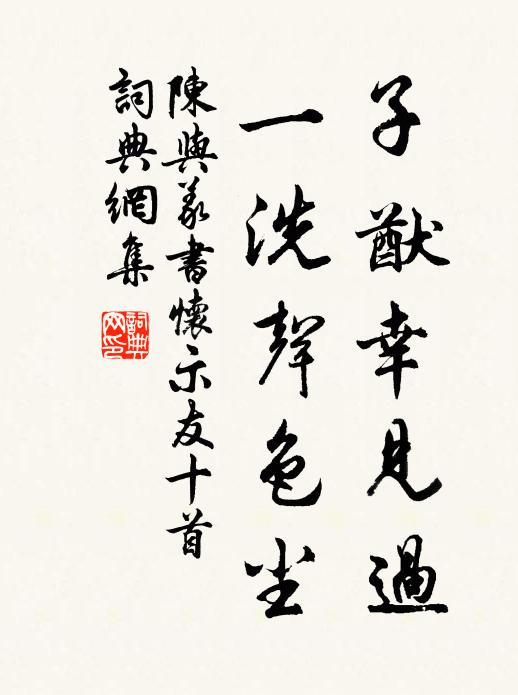 子猷幸見過
一洗聲色尘
陳與義書懷示友十首
詞典網集
詞典
网印